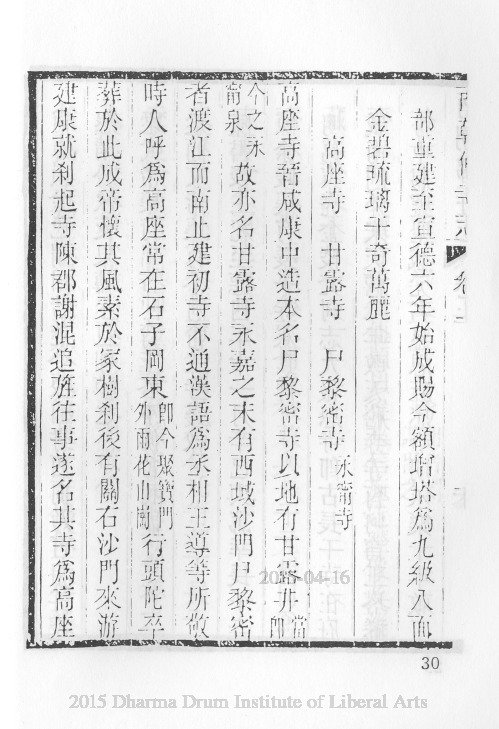 部重建至宣德六年始成賜今額增塔爲九級八面
金碧琉璃千奇萬麗
高座寺 甘露寺 尸黎密寺 永甯寺
高座寺晉咸康中造本名尸黎密寺以地有甘露井當即
今之永甯泉故亦名甘露寺永嘉之末有西域沙門尸黎密
者渡江而南止建初寺不通漢語爲丞相王導等所敬
時人呼爲高座常在石子岡東即今聚寶門外雨花山崗行頭陀卒
葬於此成帝懷其風素於冢樹刹後有關右沙門來游
建康就刹起寺陳郡謝混追旌往事遂名其寺爲高座
30
2015 Dharma Drum Institute of Liberal Arts